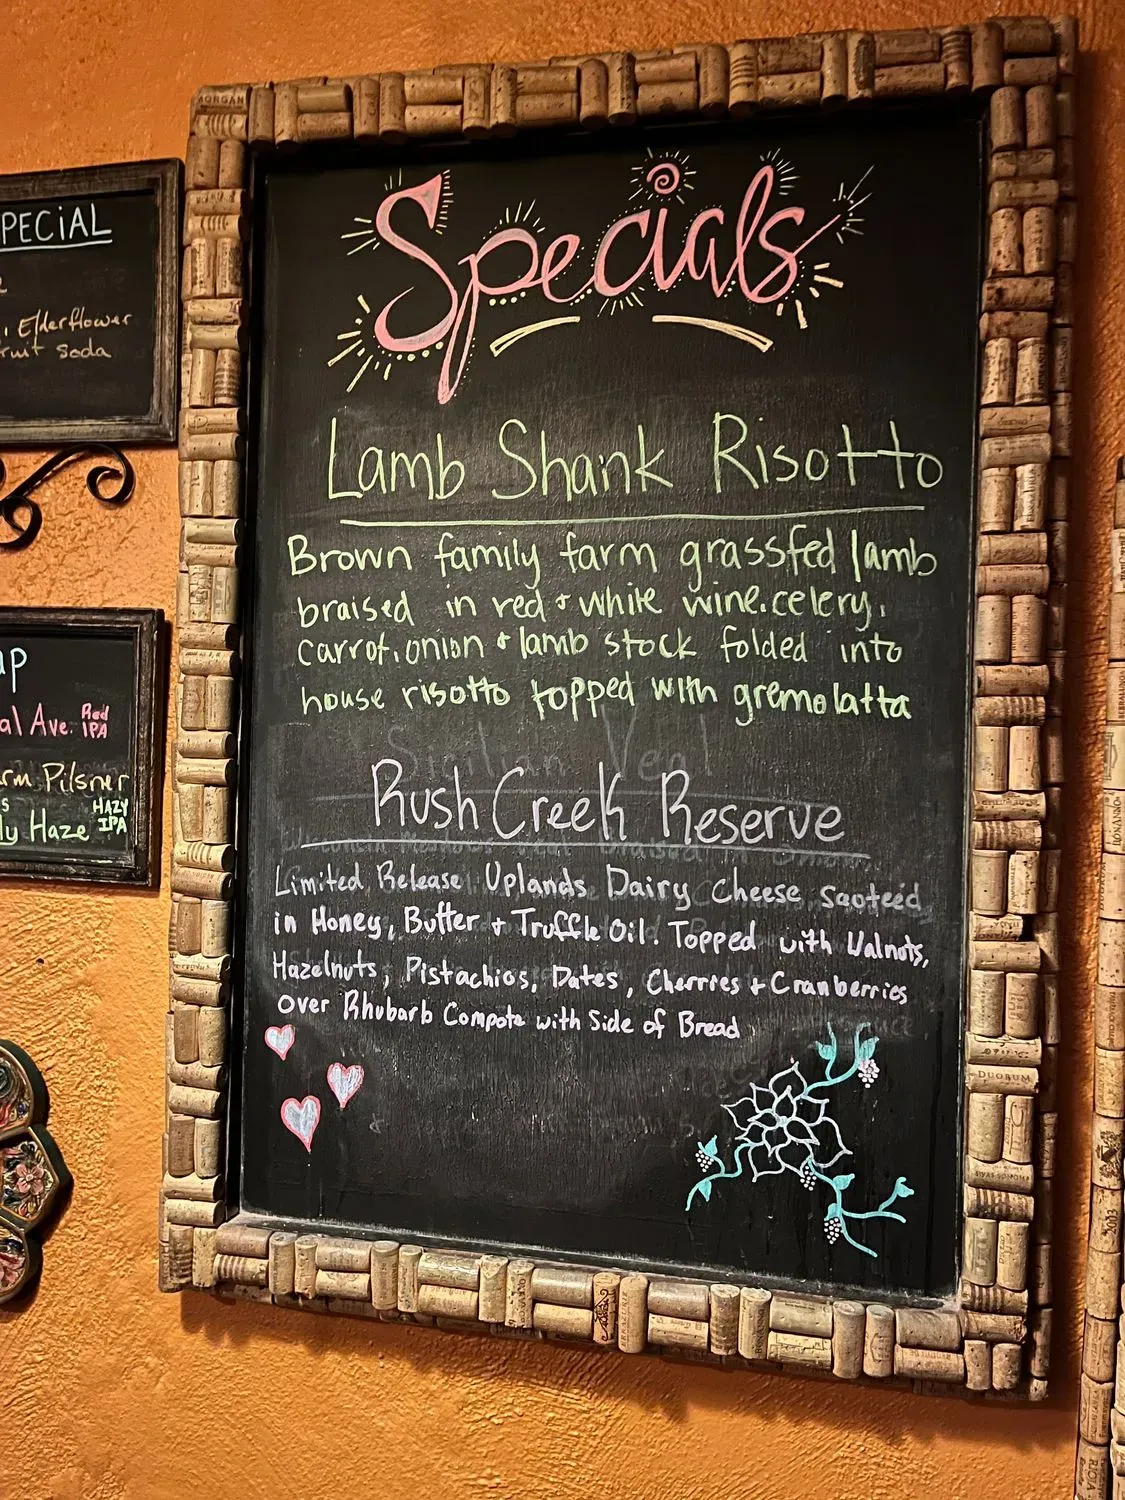 SPECIAL
, Elderflower
fruit soda
al Ave. Red IPA
rm Pilsner
ly Haze HAZY IPA
Specials
Lamb Shank Risotto
Brown family farm grassfed lamb
braised in red & white wine, celery,
carrot, onion & lamb stock folded into
house risotto topped with gremolatta
Sicilian Veal
Rush Creek Reserve
Limited Release Uplands Dairy Cheese saoteéd
in Honey, Butter + Truffle Oil. Topped with Walnuts,
Hazelnuts, Pistachios, Dates, Cherrres + Cranberries
over Rhubarb Compote with Side of Bread
MORGAN
DUORUM
2003
RIOJA